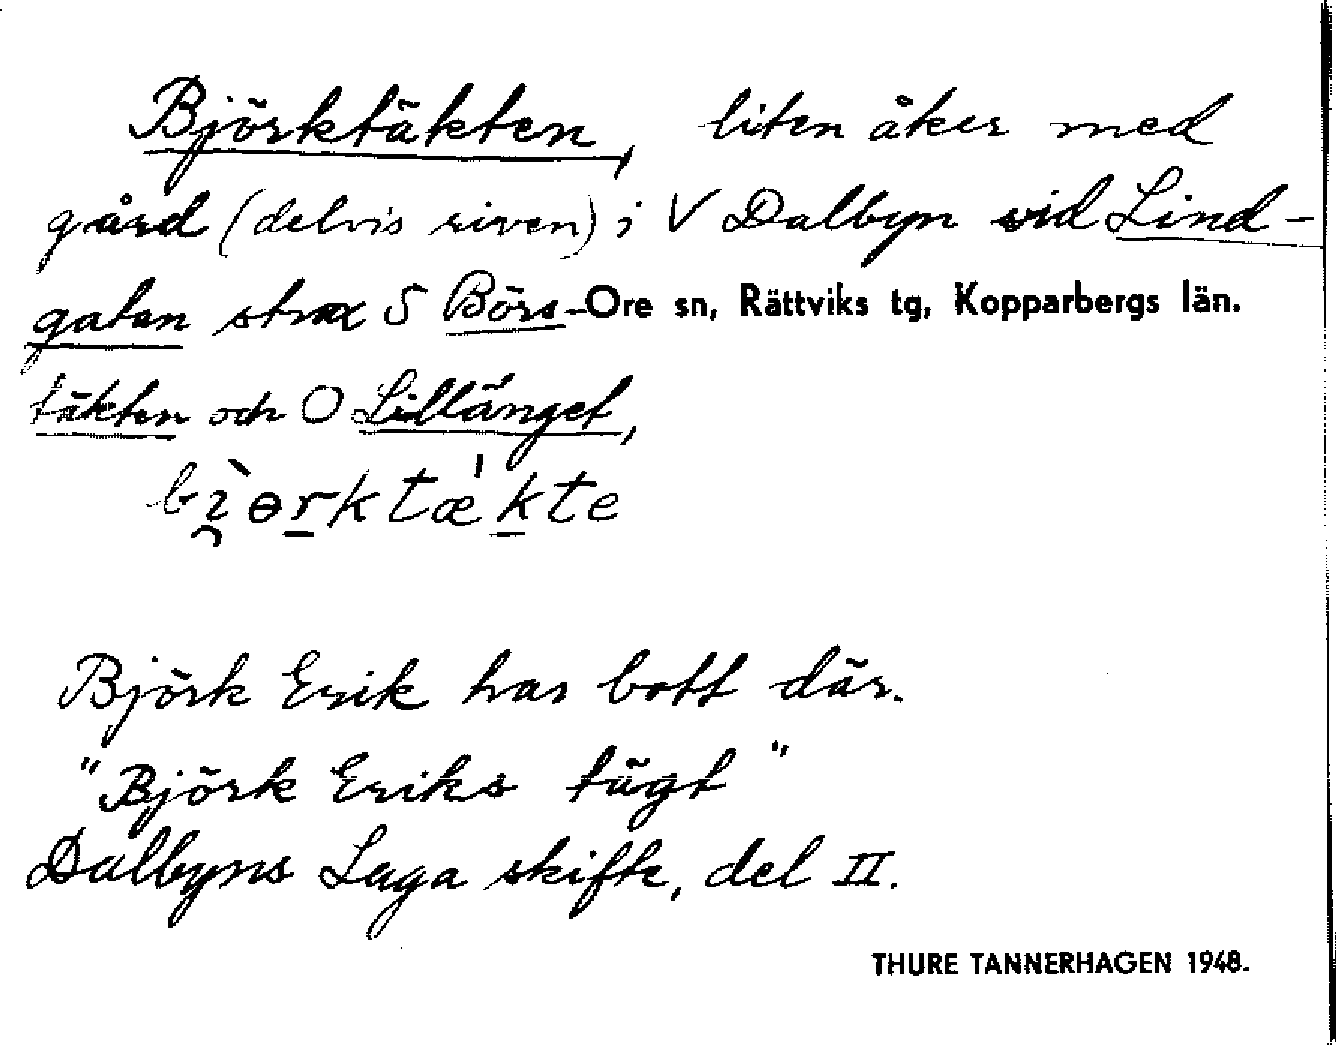 Björktäkten, liten åker med
gård (delvis riven) i V Dalbyn vid Lind-
gatan strax S Börs- Ore sn, Rättviks tg, Kopparbergs län.
täkten och O Lillänget,
Björk Erik har bott där.
"Björk Eriks tägt"
Dalbyns Laga skifte, del II.
THURE TANNERHAGEN 1948.